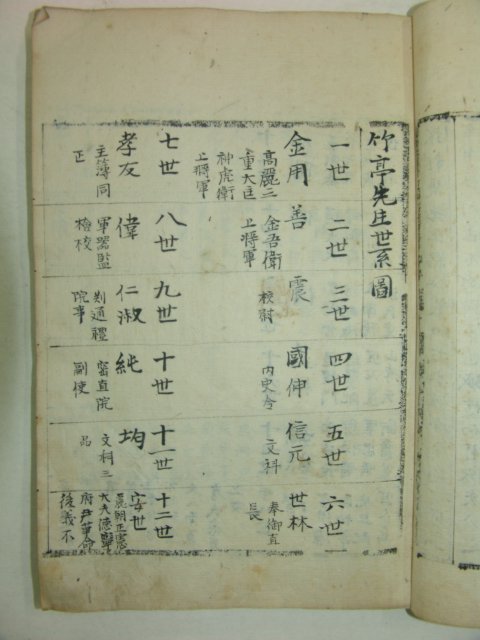 竹亭先生世系圖
一世
金用
高麗三
重大匡
神虎衛
上將軍
二世
善
金吾衛
上將軍
三世
震
校尉
四世
國伸
內史令
五世
信元
文科
六世
世林
奉御直
長
七世
孝友
主簿同
正
八世
偉
軍器監
檢校
九世
仁淑
判通禮
院事
十世
純
密直院
副使
十一世
均
文科三
品
十二世
安世
麗朝正憲
大夫德寧
府尹革命
後義不